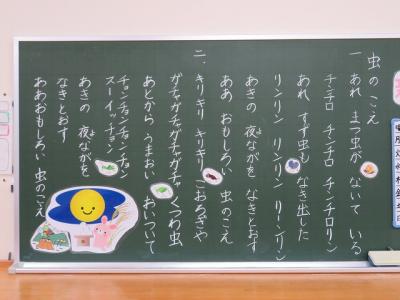 虫のこえ
一 あれ まつ虫が ないて いる
チンチロ チンチロ チンチロリン
あれ すず虫も なき出した
リンリン リンリン リーンリン
あきの 夜ながを なきとおす
よ
ああ おもしろい 虫のこえ
二、キリキリ キリキリ こおろぎや
ガチャガチャガチャガチャ くつわ虫
あとから うまおい おいついて
チョンチョンチョンチョン
スーイッチョン
あきの 夜ながを
よ
なきとおす
ああおもしろい 虫のこえ